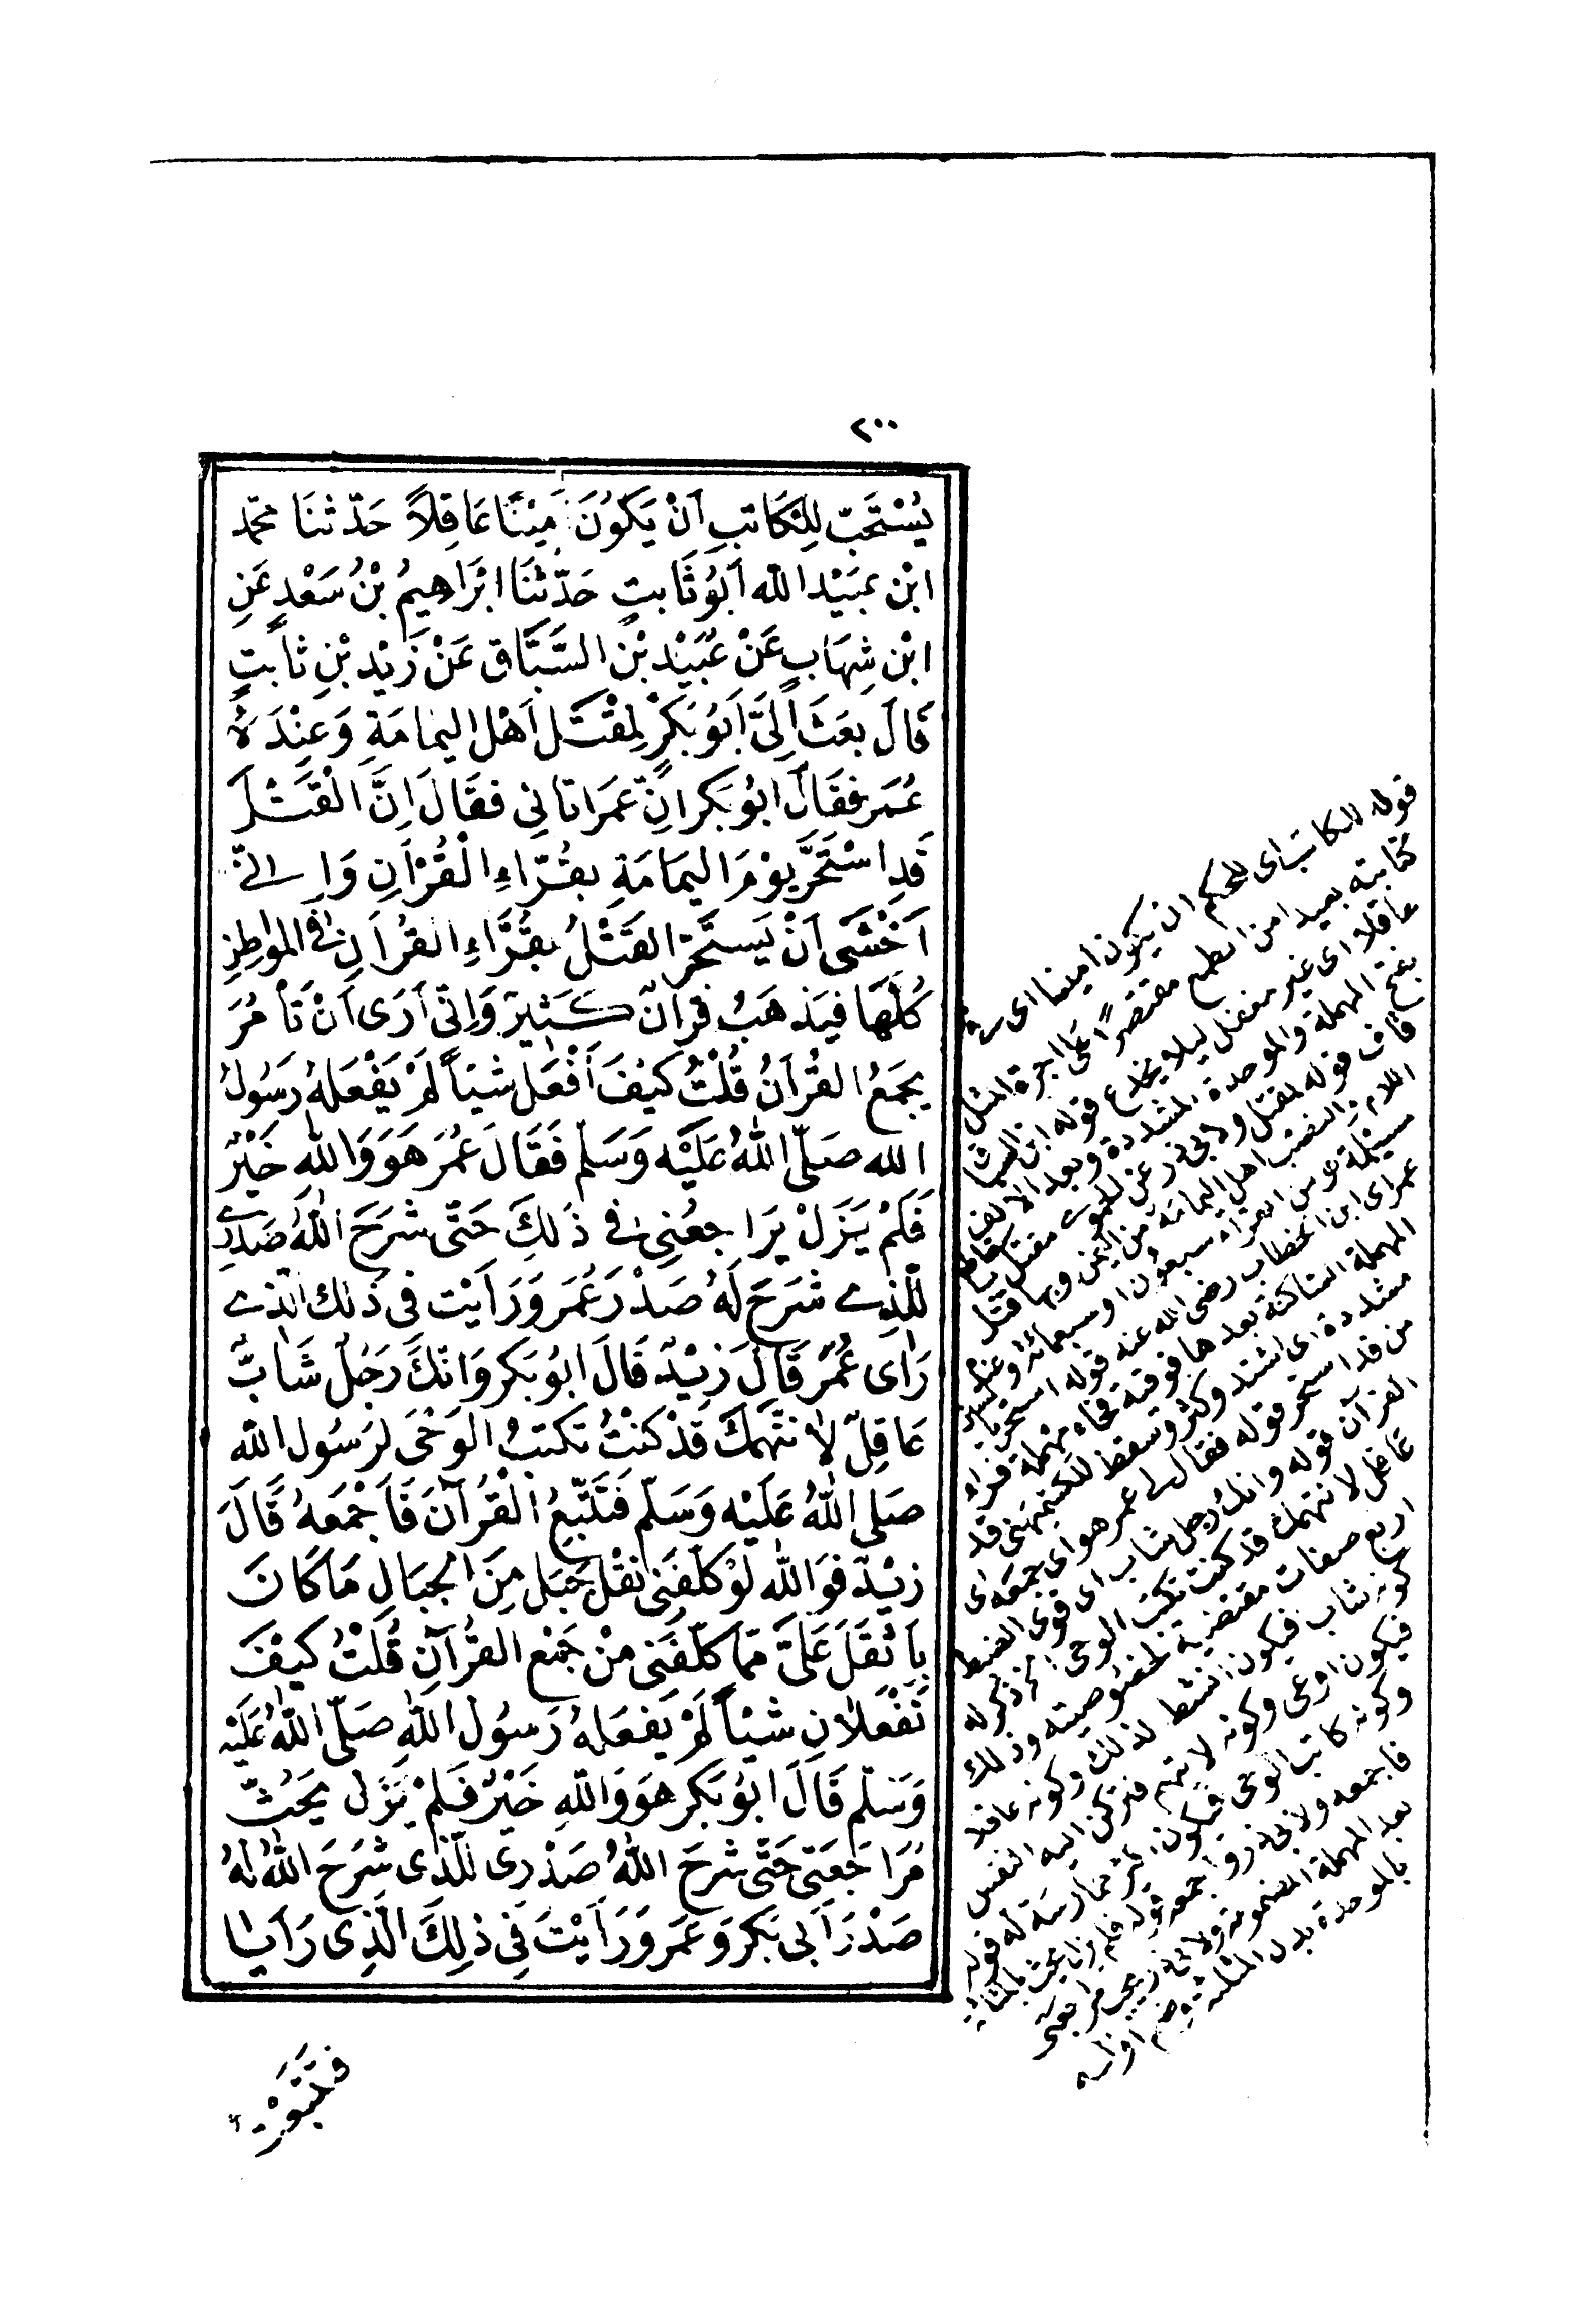 ٢٠٠
يُسْتَحَبّ لِلْكَاتِبِ اَنْ يَكُونَ اَمِيْنًا عَاقِلًا حَدّثنَا محمّد
ابْن عبَيْد الله اَبُو ثَابتٍ حَدّثنَا ابْرَاهِيمُ بْنُ سَعْدٍ عَنِ
ابْن شِهَابٍ عَنْ عُبَيْد بْن السَّبَّاق عَنْ زَيْد بْنِ ثَابتٍ
قَالَ بعَثَ اِلَىَّ اَبُو بَكرٍ لِمَقْتَل اَهْل اليمامَةِ وَعِنْدَهُ
عُمَر فقَالَ ابُو بَكر انّ عمَرَ اتانِي فقَالَ اِنَّ الْقَتْلَ
قَدِ اسْتَحَرَّ يوْمَ اليمَامَةِ بقُرّاءِ الْقُرْآنِ وَاِنّى
اَخْشَى اَنْ يَستَحِرَّ القَتْلُ بقُرَّاءِ القُرآنِ فى المَوَاطِنِ
كُلّهَا فيَذهَبُ قرآنٌ كَثِيرٌ وَاِنّى اَرَى اَنْ تَأْمُرَ
بجَمَعُ القُرْآنُ قُلْتُ كَيْفَ اَفْعَل شَيْأً لَمْ يَفْعَلهُ رَسُولُ
الله صَلّى اللهُ عَلَيْه وَسَلّم فَقَالَ عُمَر هَوَ وَاللهِ خَيْرٌ
فَلَمْ يَزَلْ يرَاجعُنِى فى ذَلِكَ حَتّى شرَحَ اللهُ صَدرِى
لِلّذِى شرَحَ لَهُ صَدْرَ عُمَرَ وَرَاَيْت فى ذَلك الّذى
رَاَى عُمَر قَالَ زيْدٌ قَالَ ابُو بَكر وَانّكَ رَجُلٌ شَابٌّ
عَاقِلٌ لاَ نتّهمكَ قَدْ كنْتُ تكتبُ الوَحْىَ لرَسُول الله
صَلى اللهُ عَلَيْه وَسَلّم فَتَتَبّعُ الْقُرآنَ فَاَجْمَعهُ قَالَ
زيْدٌ فوَالله لَوْ كَلّفَنِى نقْلَ جَبَل مِنَ الجبَالِ مَا كَانَ
بأثقَلَ عَلَىَّ ممّا كَلّفَنِى منْ جَمْع القُرآنِ قُلْتُ كيْفَ
تَفْعَلاَنِ شيْأً لَمْ يَفعَلهُ رَسُول اللهِ صَلّى اللهُ عَلَيْه
وَسَلّم قَالَ ابُو بَكر هوَ وَاللهِ خَيْرٌ فَلَمْ يَزَل يحَثُّ
مُرَاجَعَتى حَتّى شرَحَ اللهُ صَدْرِى لِلّذى شرَحَ اللهُ لهُ
صَدْرَ اَبى بَكر وَعمَر وَرَاَيْتَ فى ذلِكَ الّذِى رَاَيَا
قوله للكاتب اى للحكم ان يكون امينا اى
كتابته بعيدا من الطمع مقتصرًا على اجرة المثل
عاقلا اى غير مغفل ليلا يخدع قوله ابن السباق
بفتح المهملة والموحدة المشددة وبعد الالف
قاف قوله لمقتل ولابى ذر عن مقتل
اللام والنصب اهل اليمامة من اليمن وبها قتل
مسيلة من القراء سبعون او سبعمائة
عمر اى ابن الخطاب رضى الله عنه قوله استحر
المهملة الساكنة بعدها فوقية فحاء مهملة فراء
مشددة اى اشتد وكثر وسقط للكشميهنى قد
من قد استحر قوله فقال لى عمر هو اى جمعه اى
القرآن قوله وانك رجل شاب اى قوى الضبط
عاقل لا نتهمك قد كنت تكتب الوحى ذكر له
اربع صفات مقتضية لخصوصيته وذلك
كونه شاب فيكون انشط لذلك وكونه عاقلا
فيكون اوعى وكونه لا يتهم فتركن اليه النفس
وكونه كاتب الوحى فيكون اكثر ممارسة له قوله
فاجمعه ولابى ذر واجمعه قوله فلم يزل يحث بالمثلثة
بعد المهملة المضمومة ولابى ذر يحب مراجعتى
بالموحدة بدل المثلثة وضم اوله
فتتبعْت